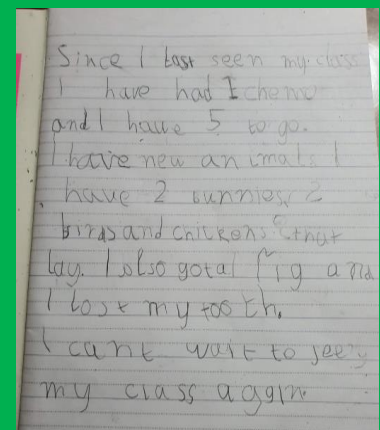 Since I last seen my class
I have had 1 chemo
and I have 5 to go.
I have new animals I
have 2 bunnies, 2
birds and chickens that
lay. I olso got a and
I lost my tooth.
I cant wait to see
my class again.